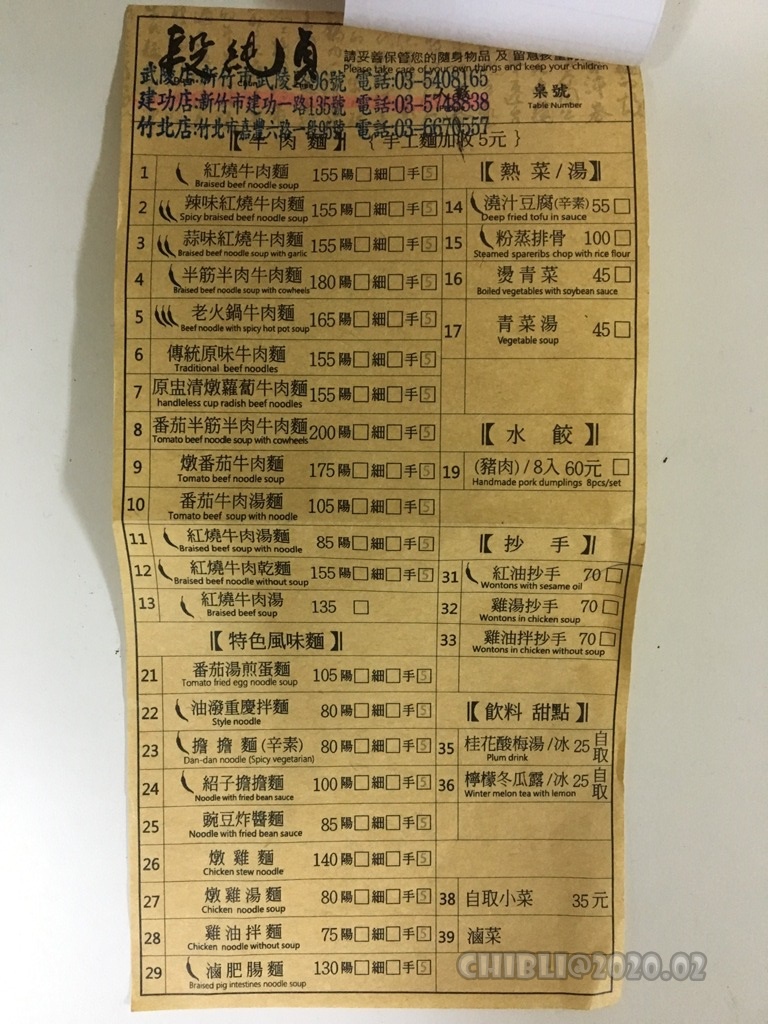 段純貞
請妥善保管您的隨身物品 及 留意孩童
Please take care of your own things and keep your children
武陵店:新竹市武陵路96號 電話:03-5408165
建功店:新竹市建功一路135號 電話:03-5748838
竹北店:竹北市嘉豐六路一段95號 電話:03-6670557
桌號
Table Number
【牛 肉 麵】 { 手工麵加收 5元 }
1 紅燒牛肉麵 155 陽□細□手5
Braised beef noodle soup
2 辣味紅燒牛肉麵 155 陽□細□手5
Spicy braised beef noodle soup
3 蒜味紅燒牛肉麵 155 陽□細□手5
Braised beef noodle soup with garlic
4 半筋半肉牛肉麵 180 陽□細□手5
Braised beef noodle soup with cowheels
5 老火鍋牛肉麵 165 陽□細□手5
Beef noodle with spicy hot pot soup
6 傳統原味牛肉麵 155 陽□細□手5
Traditional beef noodles
7 原盅清燉蘿蔔牛肉麵 155 陽□細□手5
handleless cup radish beef noodles
8 番茄半筋半肉牛肉麵 200 陽□細□手5
Tomato beef noodle soup with cowheels
9 燉番茄牛肉麵 175 陽□細□手5
Tomato beef noodle soup
10 番茄牛肉湯麵 105 陽□細□手5
Tomato beef soup with noodle
11 紅燒牛肉湯麵 85 陽□細□手5
Braised beef soup with noodle
12 紅燒牛肉乾麵 155 陽□細□手5
Braised beef noodle without soup
13 紅燒牛肉湯 135 □
Braised beef soup
【特色風味麵】
21 番茄湯煎蛋麵 105 陽□細□手5
Tomato fried egg noodle soup
22 油潑重慶拌麵 80 陽□細□手5
Style noodle
23 擔 擔 麵 (辛素) 80 陽□細□手5
Dan-dan noodle (Spicy vegetarian)
24 紹子擔擔麵 100 陽□細□手5
Noodle with fried bean sauce
25 豌豆炸醬麵 85 陽□細□手5
Noodle with fried bean sauce
26 燉 雞 麵 140 陽□細□手5
Chicken stew noodle
27 燉 雞 湯 麵 80 陽□細□手5
Chicken noodle soup
28 雞 油 拌 麵 75 陽□細□手5
Chicken noodle without soup
29 滷 肥 腸 麵 130 陽□細□手5
Braised pig intestines noodle soup
【熱 菜 / 湯】
14 澆汁豆腐(辛素) 55 □
Deep fried tofu in sauce
15 粉蒸排骨 100 □
Steamed spareribs chop with rice flour
16 燙 青 菜 45 □
Boiled vegetables with soybean sauce
17 青 菜 湯 45 □
Vegetable soup
【水 餃】
19 (豬肉) / 8入 60元 □
Handmade pork dumplings 8pcs/set
【抄 手】
31 紅油抄手 70 □
Wontons with sesame oil
32 雞湯抄手 70 □
Wontons in chicken soup
33 雞油拌抄手 70 □
Wontons in chicken without soup
【飲料 甜點】
35 桂花酸梅湯 /冰 25 自取
Plum drink
36 檸檬冬瓜露 /冰 25 自取
Winter melon tea with lemon
38 自取小菜 35 元
39 滷菜
CHIBLI@2020.02